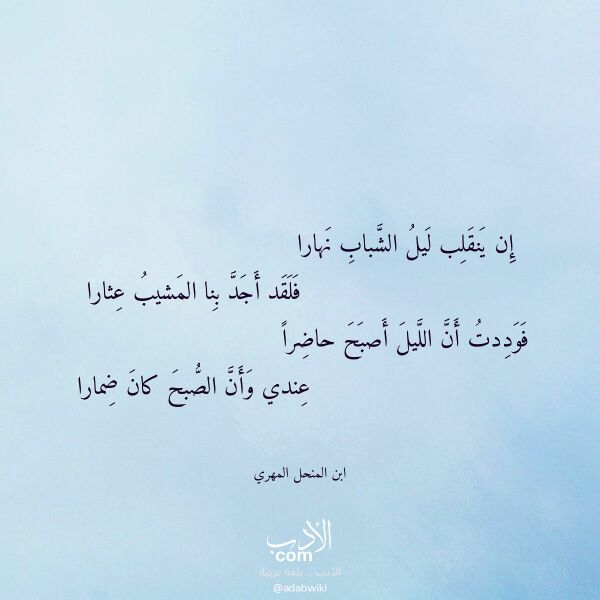 إِن يَنقَلِب لَيلُ الشَّبابِ نَهارا
فَلَقَد أَجَدَّ بِنا المَشيبُ عِثارا
فَوَدِدتُ أَنَّ اللَّيلَ أَصبَحَ حاضِراً
عِندي وَأَنَّ الصُّبحَ كانَ ضِمارا
ابن المنحل المهري
الأدب
com
الأدب .. بلغة عربية
@adabwiki